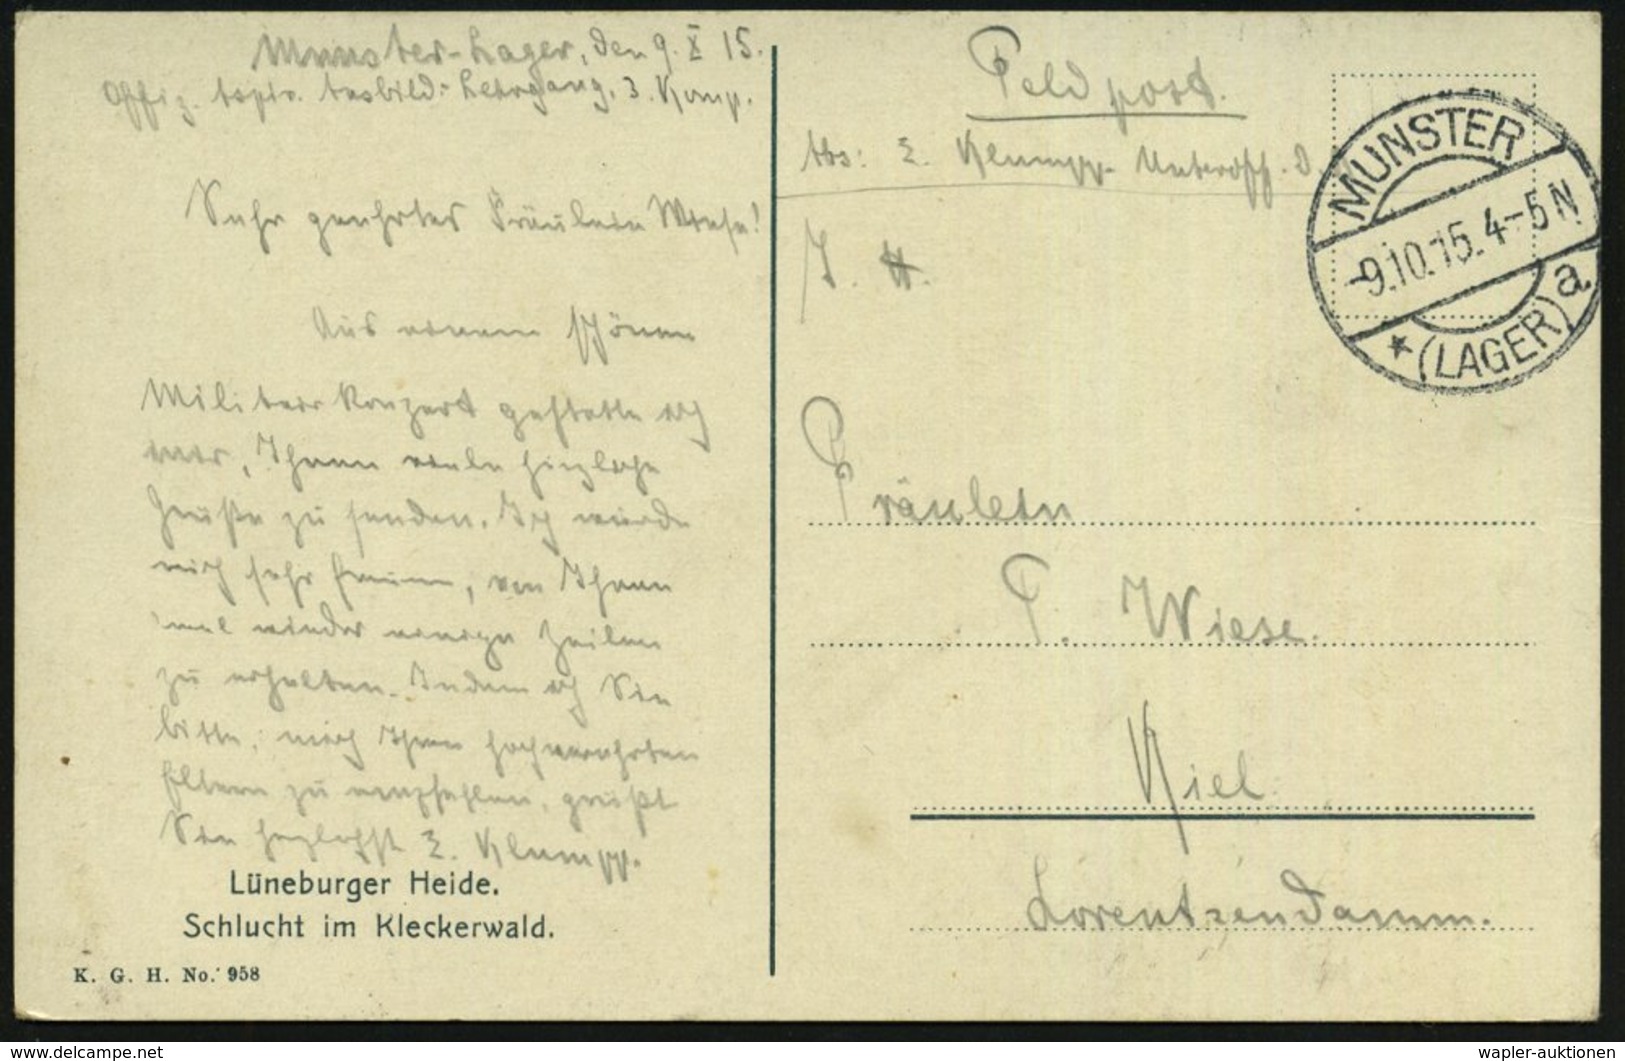 Munster-Lager, den 9. X 15.
Offiz. Aspir. Ausbild.-Lehrgang, 3. Komp.
Sehr geehrtes Fräulein Wiese!
Aus einem schönen
Militärkonzert gestatte ich
mir, Ihnen viele herzliche
Grüße zu senden. Ich würde
mich sehr freuen, von Ihnen
mal wieder einige Zeilen
zu erhalten. Indem ich Sie
bitte, mich Ihren hochverehrten
Eltern zu empfehlen, grüßt
Sie herzlichst E. Klumpp.
Lüneburger Heide.
Schlucht im Kleckerwald.
K. G. H. No. 958
Feldpost.
Abs: E. Klumpp Unteroffz. d.
MUNSTER
-9.10.15. 4-5 N
* (LAGER) a.
Fräulein
P. Wiese.
Kiel.
Lorentzendamm.
https://www.delcampe.net
wapler-auktionen